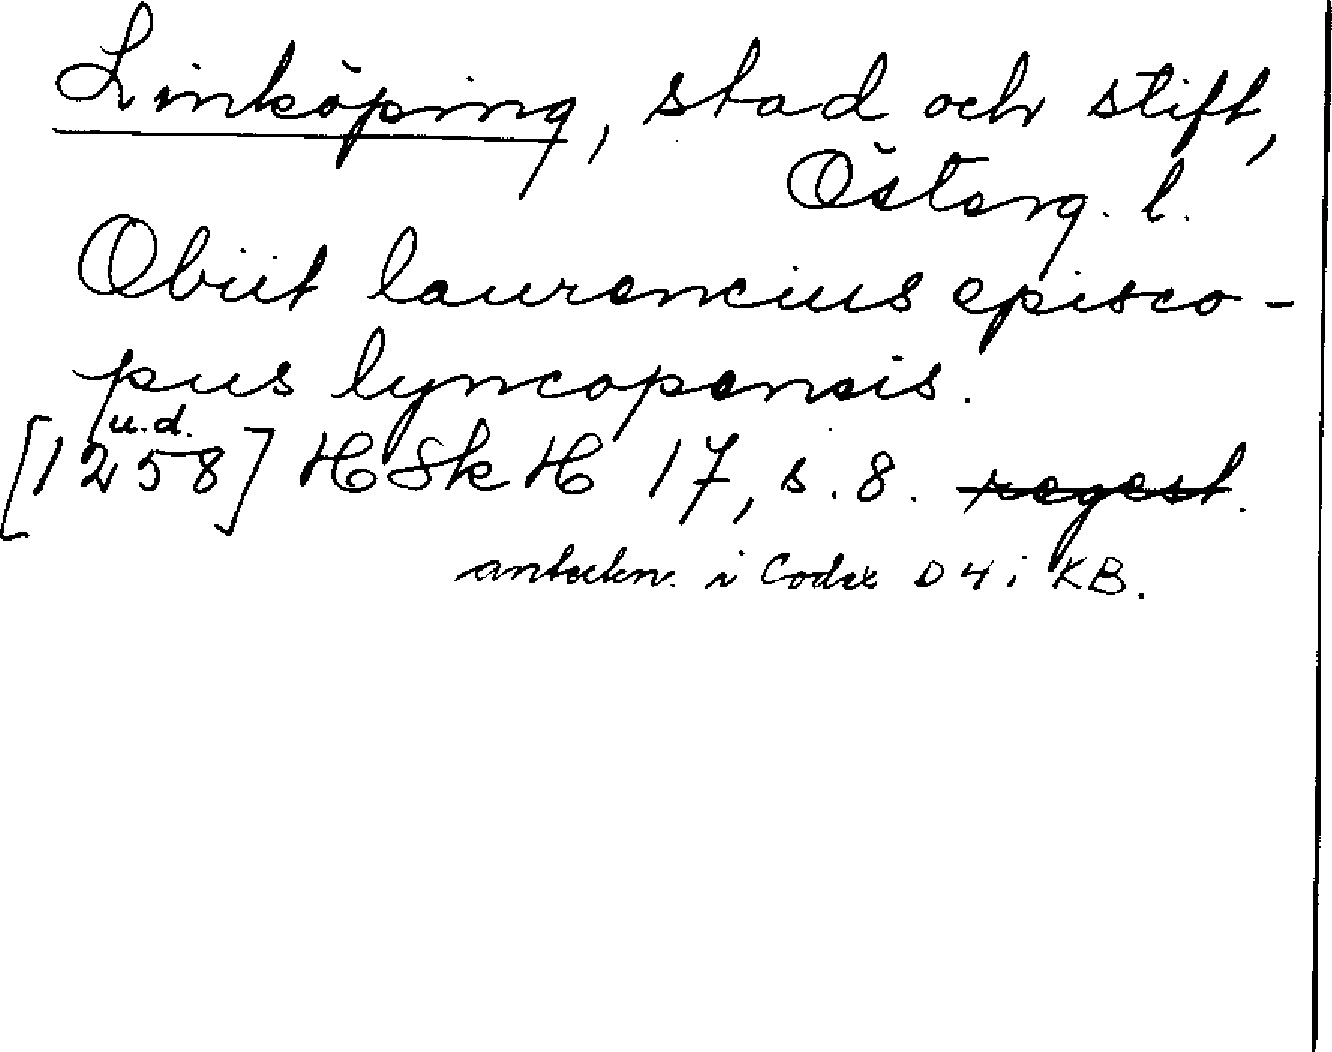 Linköping, stad och stift,
Österg. l.
Obiit laurencius episco-
pus lyncopensis.
u.d.
[1258] HSkH 17, s. 8. regest.
anteckn. i Codex D 4 i KB.